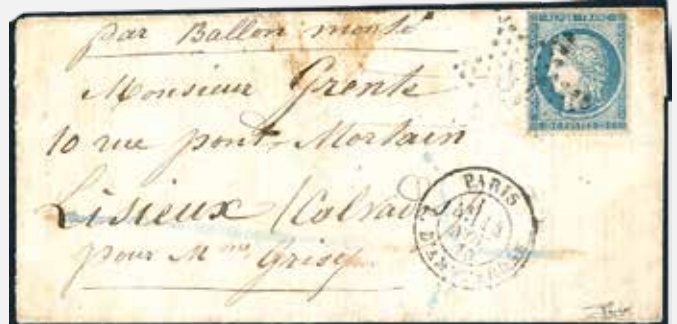 par Ballon monté
Monsieur Grente
10 rue pont-Mortain
Lisieux (Calvados
pour Mme Grisey
PARIS